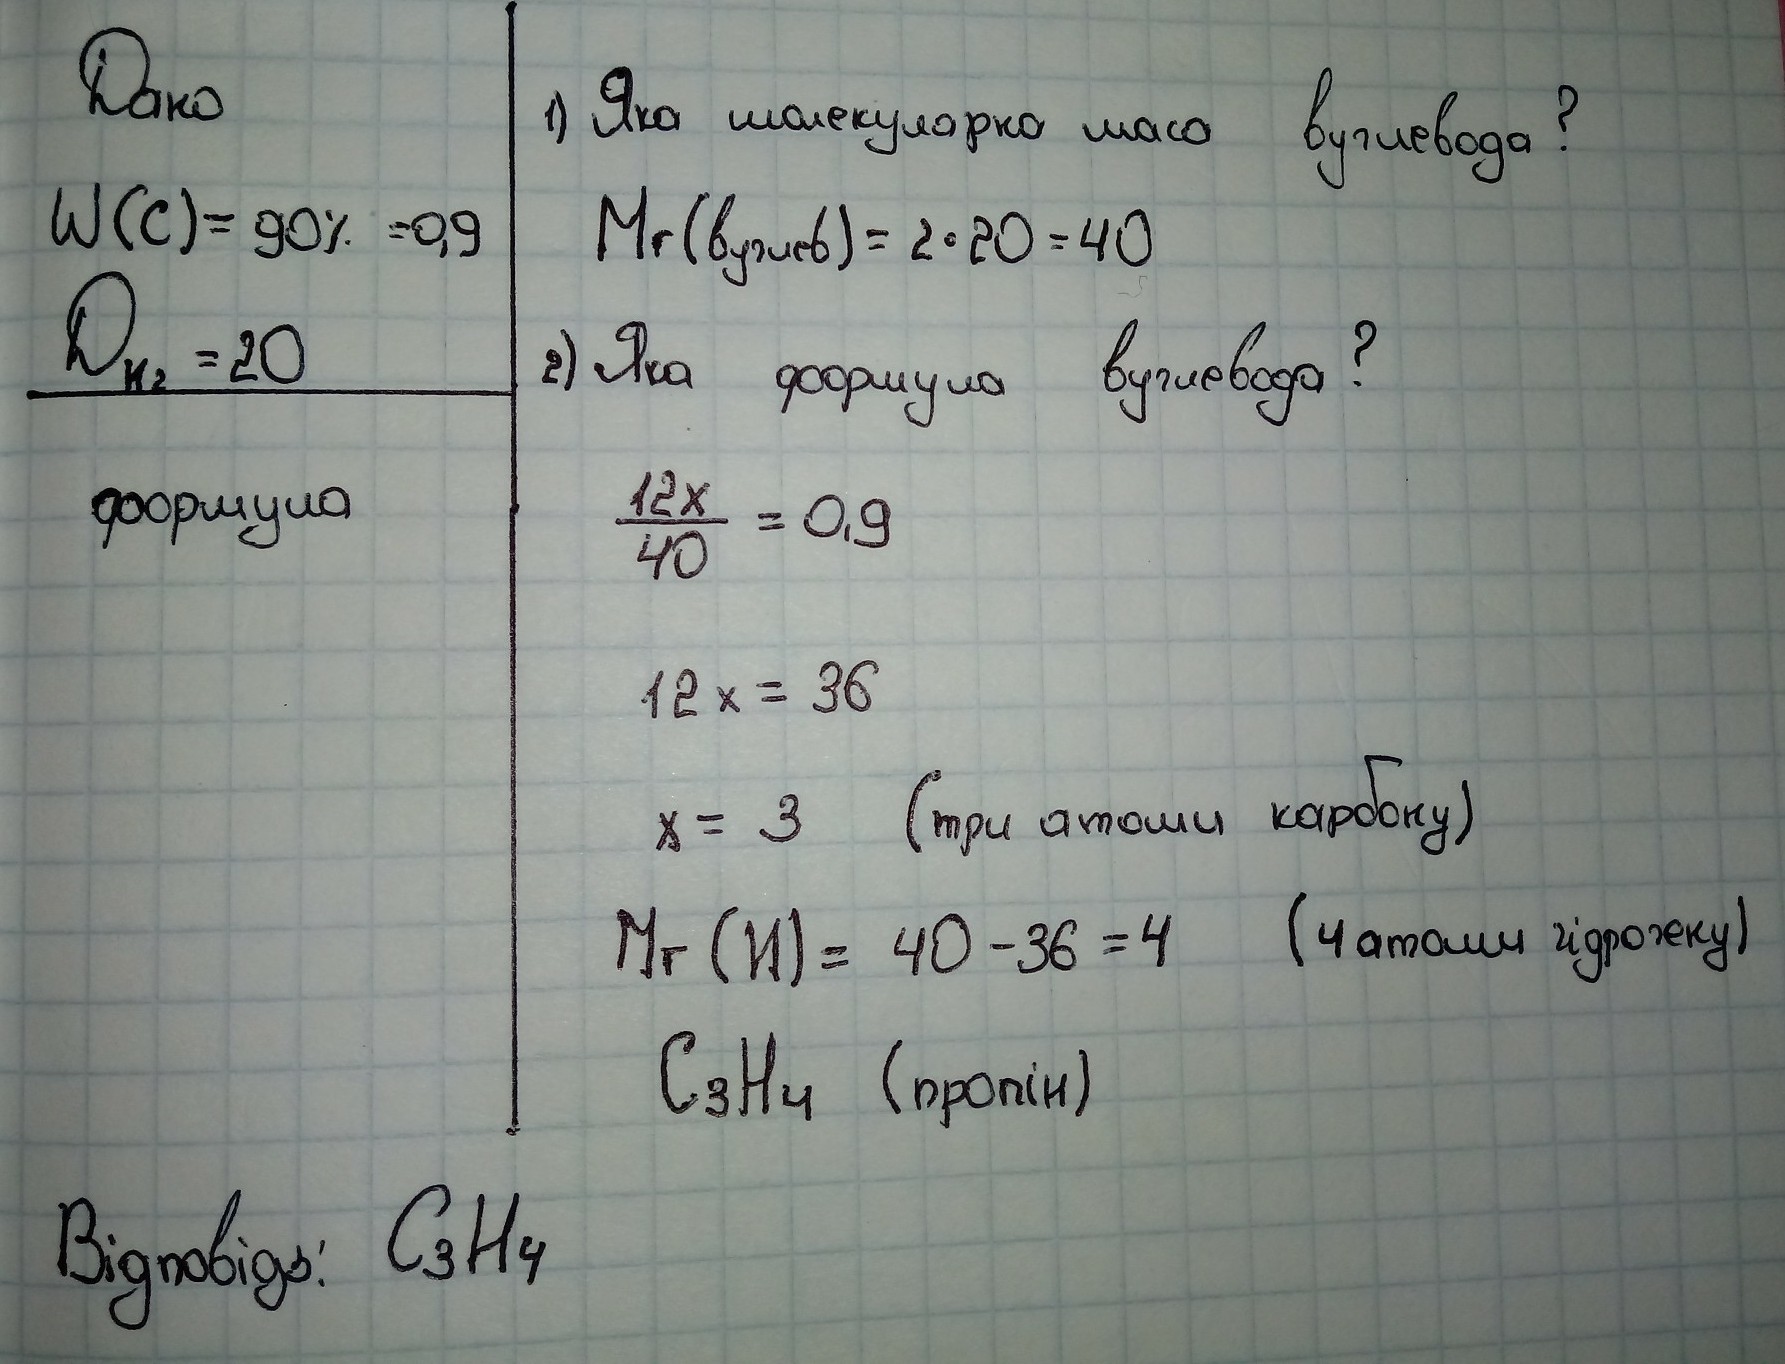 Дано
W(C)= 90% =0,9
D H₂ = 20
формула
1) Яка молекулярна маса вуглевода?
Mr(вуглев) = 2•20 = 40
2) Яка формула вуглевода?
12x/40 = 0,9
12x = 36
x = 3 (три атоми карбону)
Mr (H) = 40 - 36 = 4 (4 атоми гідрогену)
C₃H₄ (пропін)
Відповідь: C₃H₄